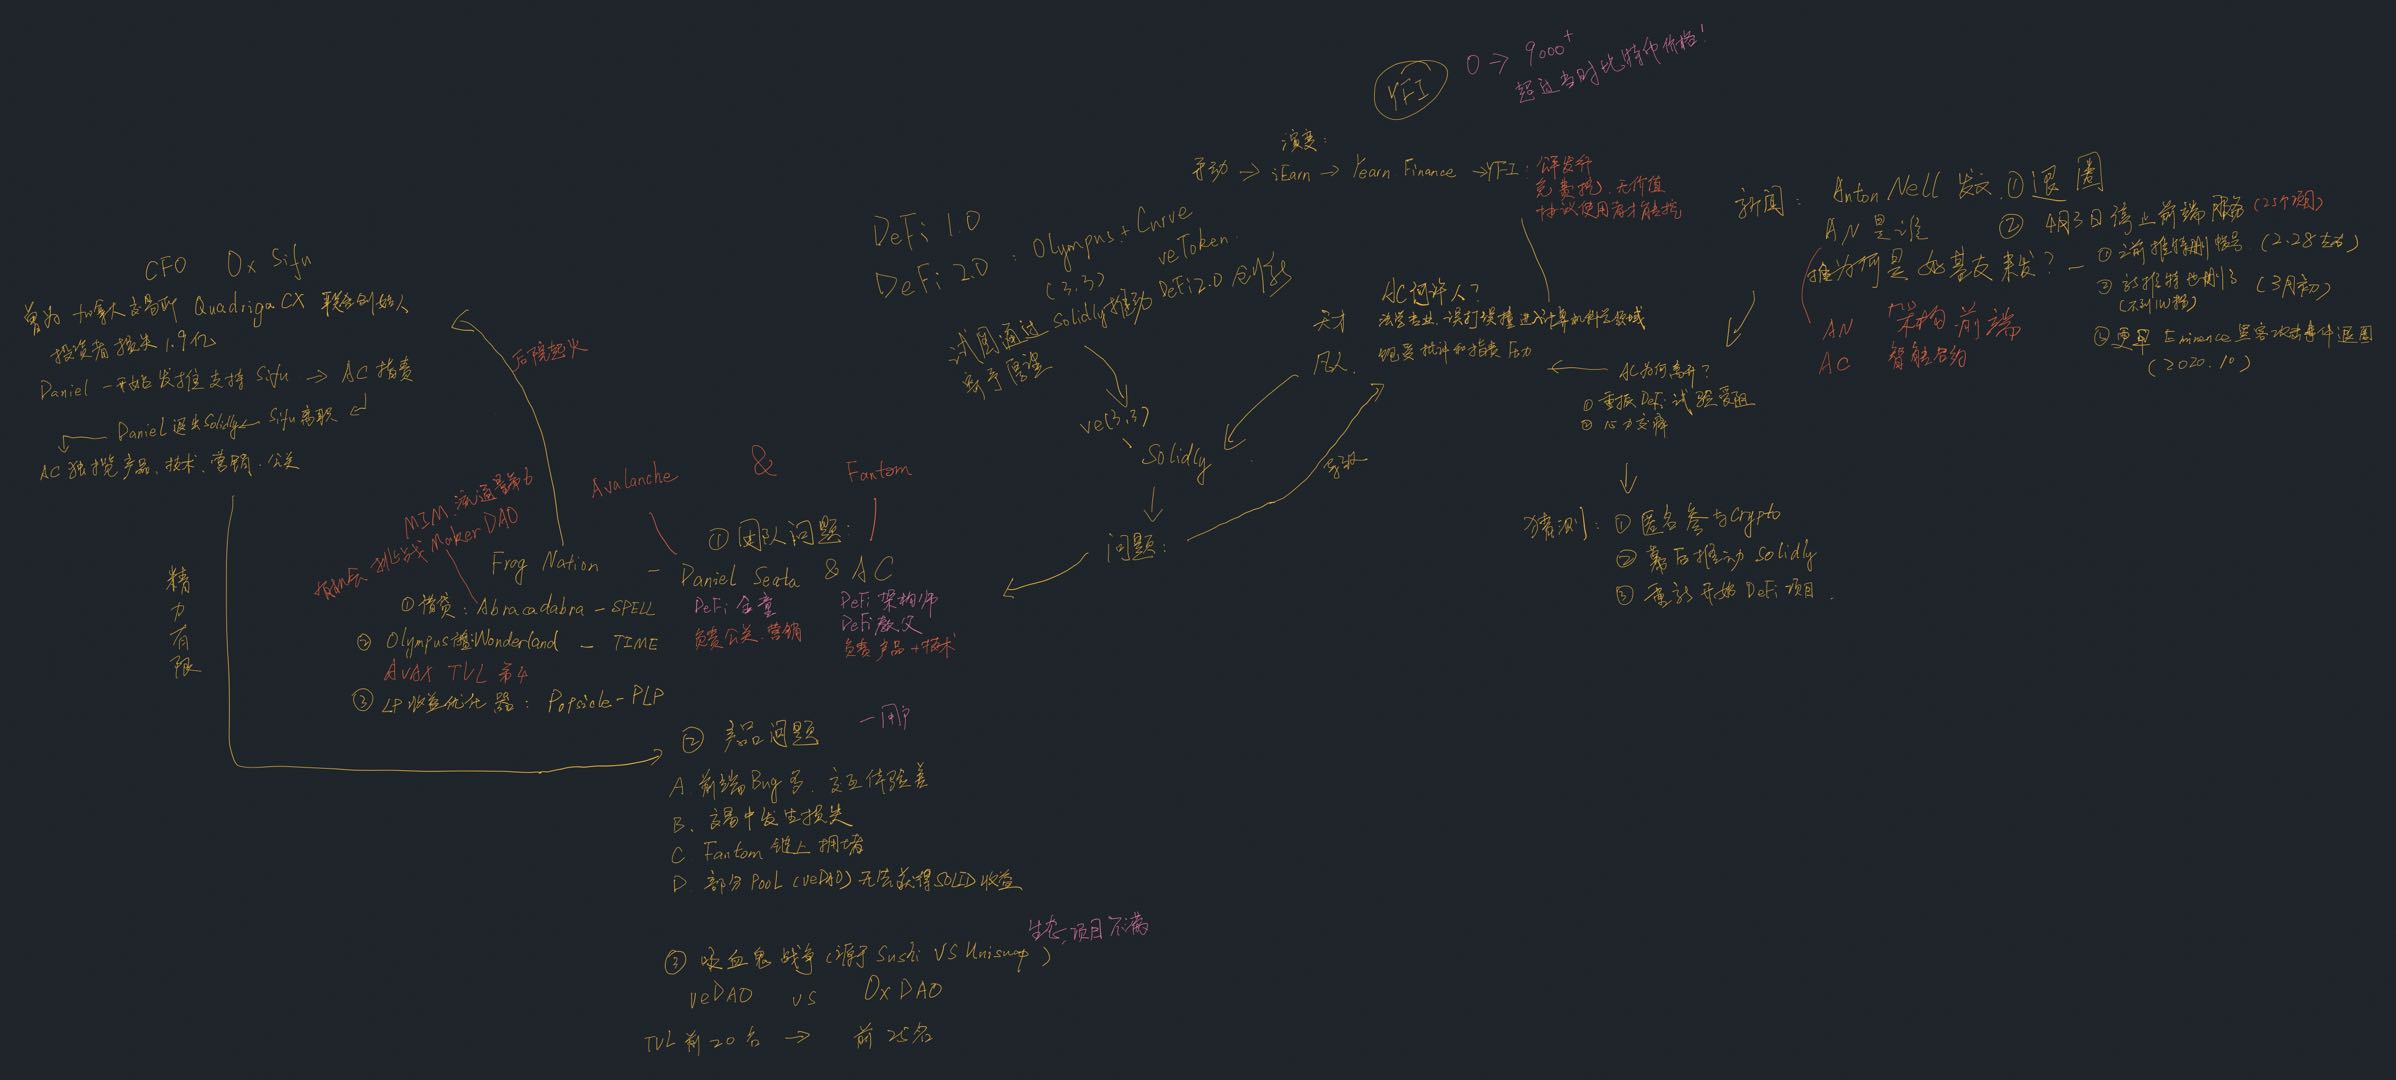 YFI
0 → 9000+
超过当时比特币价格!
演变:
手动 → iEarn → Yearn Finance → YFI:
公平发行
免费挖、无价值
协议使用者才能挖
新闻: Anton Nell 发文 ① 退圈
② 4月3日停止前端服务 (25个项目)
AN 是谁
推为何是好基友来发? —
① 之前推特删帐号 (2.28左右)
② 新推特也删了 (3月初)
③ 更早 Eminence 黑客攻击事件退圈
(2020.10)
AN 架构 前端
AC 智能合约
DeFi 1.0
DeFi 2.0 : Olympus + Curve
(3,3) veToken
试图通过 Solidly 推动 DeFi 2.0 创新
ve(3,3)
Solidly
问题:
导致
AC何许人?
天才 法学专业、误打误撞进入计算机科学领域
凡人 饱受批评和指责 压力
AC为何离开?
① 重振DeFi试验受阻
② 心力交瘁
猜测: ① 匿名参与Crypto
② 幕后推动 Solidly
③ 重新开始 DeFi 项目.
CFO 0x Sifu
曾为 加拿大交易所 QuadrigaCX 联合创始人
投资者损失 1.9亿
Daniel 一开始发推支持 Sifu → AC 指责
Daniel 退出 Solidly ← Sifu 离职
AC 独揽产品、技术、营销、公关
后院起火
精力有限
Avalanche & Fantom
① 团队问题:
Frog Nation — Daniel Sesta & AC
MIM 流通量第6
挑战 MakerDAO
DeFi 金童
负责公关、营销
DeFi 架构师
DeFi 教父
负责产品+技术
① 借贷: Abracadabra — SPELL
② Olympus Wonderland — TIME
AVAX TVL 第4
③ LP收益优化器: Popsicle — PLP
② 产品问题 — 用户
A. 前端Bug多、交互体验差
B、交易中发生损失
C. Fantom 链上拥堵
D. 部分 Pool (veDAO) 无法获得SOLID收益
生态项目不满
③ 吸血鬼战争 (源于 Sushi VS Uniswap)
veDAO vs 0xDAO
TVL 前20名 → 前25名